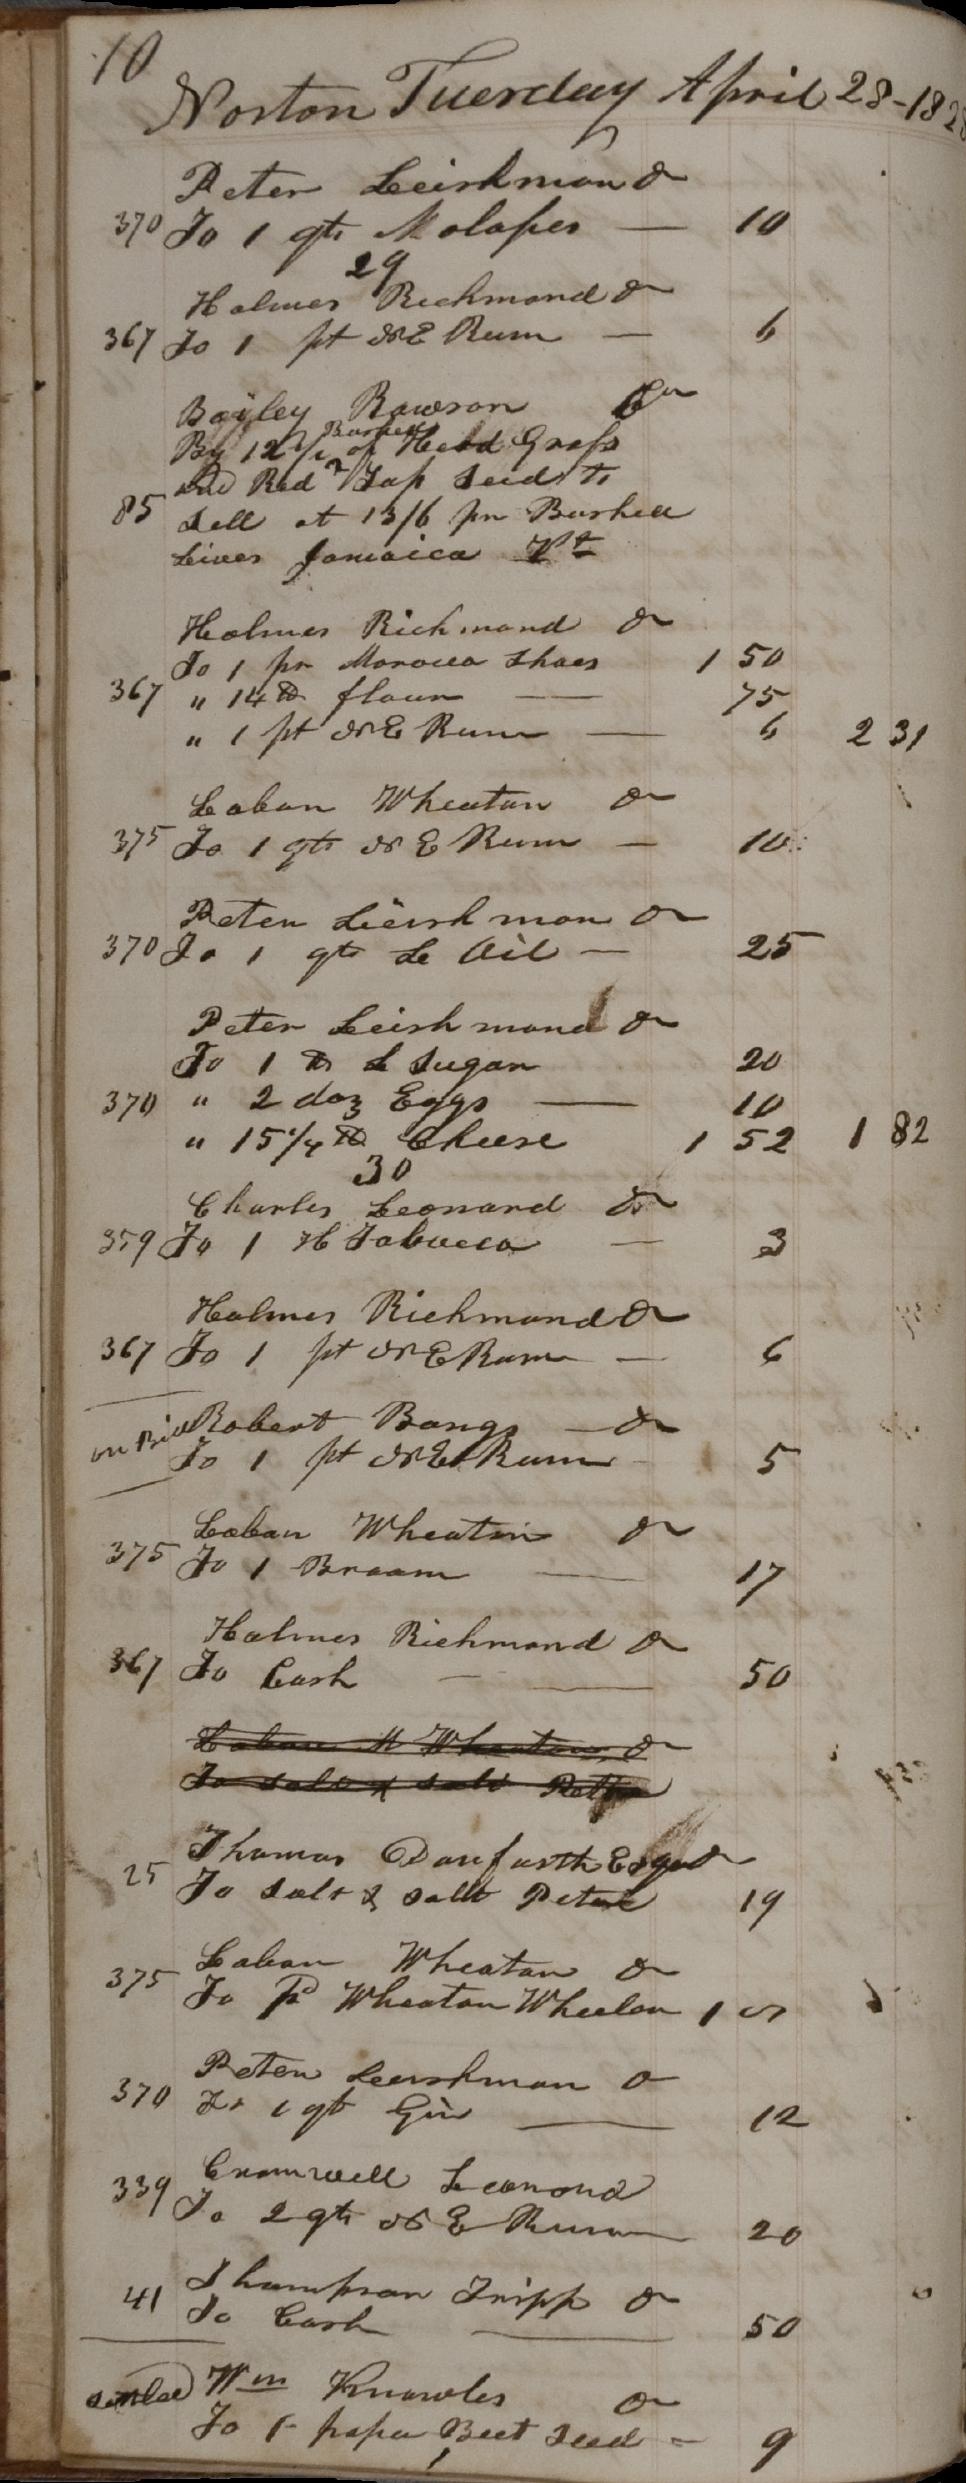 10
Norton Tuesday April 28-1828
Peter Leishman Dr
370 To 1 qt Molasses — 10
29
Holmes Richmond Dr
367 To 1 pt N E Rum — 6
Bayley Rawson Cr
By 12 1/2 Bushel of Herd Grass
and Red Top Seed to
85 Sell at 13/6 pr Bushell
Lives Jamaica Vt
Holmes Richmond Dr
To 1 pr Morocco Shoes 1 50
367 " 14 lb flour — 75
" 1 pt N E Rum — 6 2 31
Laban Wheaton Dr
375 To 1 qt N E Rum — 10
Peter Leishman Dr
370 To 1 qt L Oil — 25
Peter Leishman Dr
To 1 lb L Sugar 20
370 " 2 doz Eggs — 10
" 15 1/4 lb Cheese 1 52 1 82
30
Charles Leonard Dr
359 To 1 H Tobacco — 3
Holmes Richmond Dr
367 To 1 pt N E Rum — 6
on Bill Robert Bangs — Dr
To 1 pt N E Rum - 5
Laban Wheaton Dr
375 To 1 Broom — 17
Holmes Richmond Dr
367 To Cash — 50
Laban M Wheaton Dr
To Salt & Salt Petre
Thomas Danforth Esqr Dr
25 To Salt & Salt Petre 19
Laban Wheaton Dr
375 To pd Wheaton Wheelor 1 00
Peter Leishman Dr
370 To 1 qt Gin — 12
Cromwell Leonard
339 To 2 qts N E Rum — 20
Thompson Tripp Dr
41 To Cash — 50
Settled Wm Knowles Dr
To 1 paper Beet Seed - 9